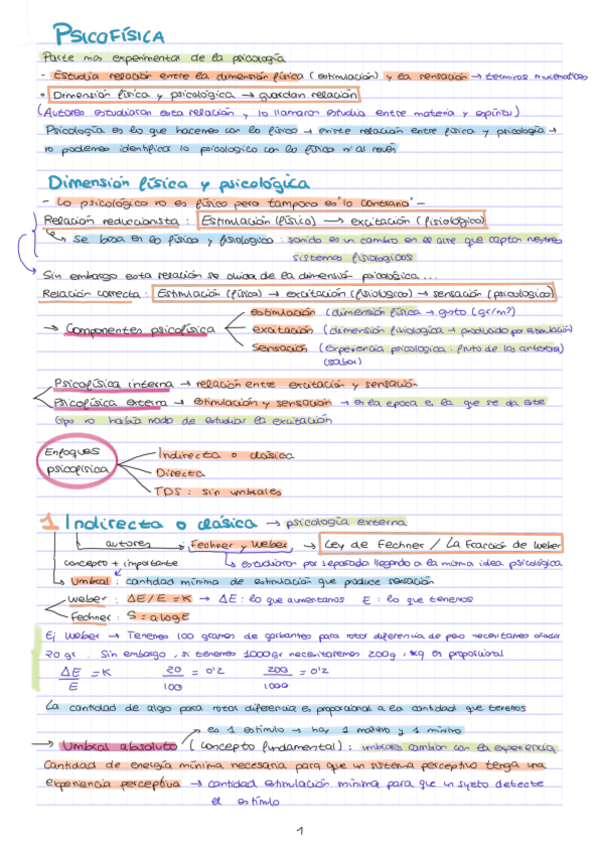 PSICOFÍSICA
Parte mas experimental de la psicología
- Estudia relación entre la dimensión física (estimulación) y la sensación → términos matemáticos
• Dimensión física y psicológica → guardan relación
(Autores estudiaron esta relación y lo llamaron estudia entre materia y espíritu)
Psicología es lo que hacemos con lo físico → existe relación entre física y psicología →
no podemos identificar lo psicologico con lo físico ni al revés
Dimensión física y psicológica
- Lo psicológico no es físico pero tampoco es "lo contrario" -
Relación reduccionista : Estimulación (físico) → excitación (fisiológico)
↳ Se basa en lo físico y fisiologico : sonido es un cambio en el aire que captan nuestros
sistemas fisiológicos
Sin embargo esta relación se olvida de la dimensión psicológica ...
Relación correcta : Estimulación (física) → excitación (fisiologico) → sensación (psicologico)
estimulación (dimensión física → gusto (gr/m³)
→ Componentes psicofísica
excitación (dimensión fisiologica → producido por estimulación)
Sensación (experiencia psicologica : fruto de las anteriores)
(sabor)
Psicofísica interna → relación entre excitación y sensación
Psicofísica externa → estimulación y sensación → en la epoca en la que se da este
tipo no había modo de estudiar la excitación
Enfoques psicofísica
Indirecta o clásica
Directa
TDS : sin umbrales
1 Indirecta o clásica → psicología externa
autores : Fechner y Weber → Ley de Fechner / La Fracción de Weber
concepto + importante
↳ estudiaron por separado llegando a la misma idea psicológica
↳ Umbral : cantidad mínima de estimulación que produce sensación
Weber : ΔE/E = K → ΔE : lo que aumentamos E : lo que tenemos
Fechner : S = a log E
Ej Weber → Tenemos 100 gramos de garbanzos para notar diferencia de peso necesitamos añadir
20 gr. Sin embargo, si tenemos 1000gr necesitaremos 200g, xq es proporcional
ΔE/E = K 20/100 = 0'2 200/1000 = 0'2
La cantidad de algo para notar diferencia es proporcional a la cantidad que tenemos
→ es 1 estímulo → hay 1 máximo y 1 mínimo
→ Umbral absoluto (concepto fundamental) : umbrales cambian con la experiencia
Cantidad de energía mínima necesaria para que un sistema perceptivo tenga una
experiencia perceptiva → cantidad estimulación mínima para que un sujeto detecte
el estímulo
1